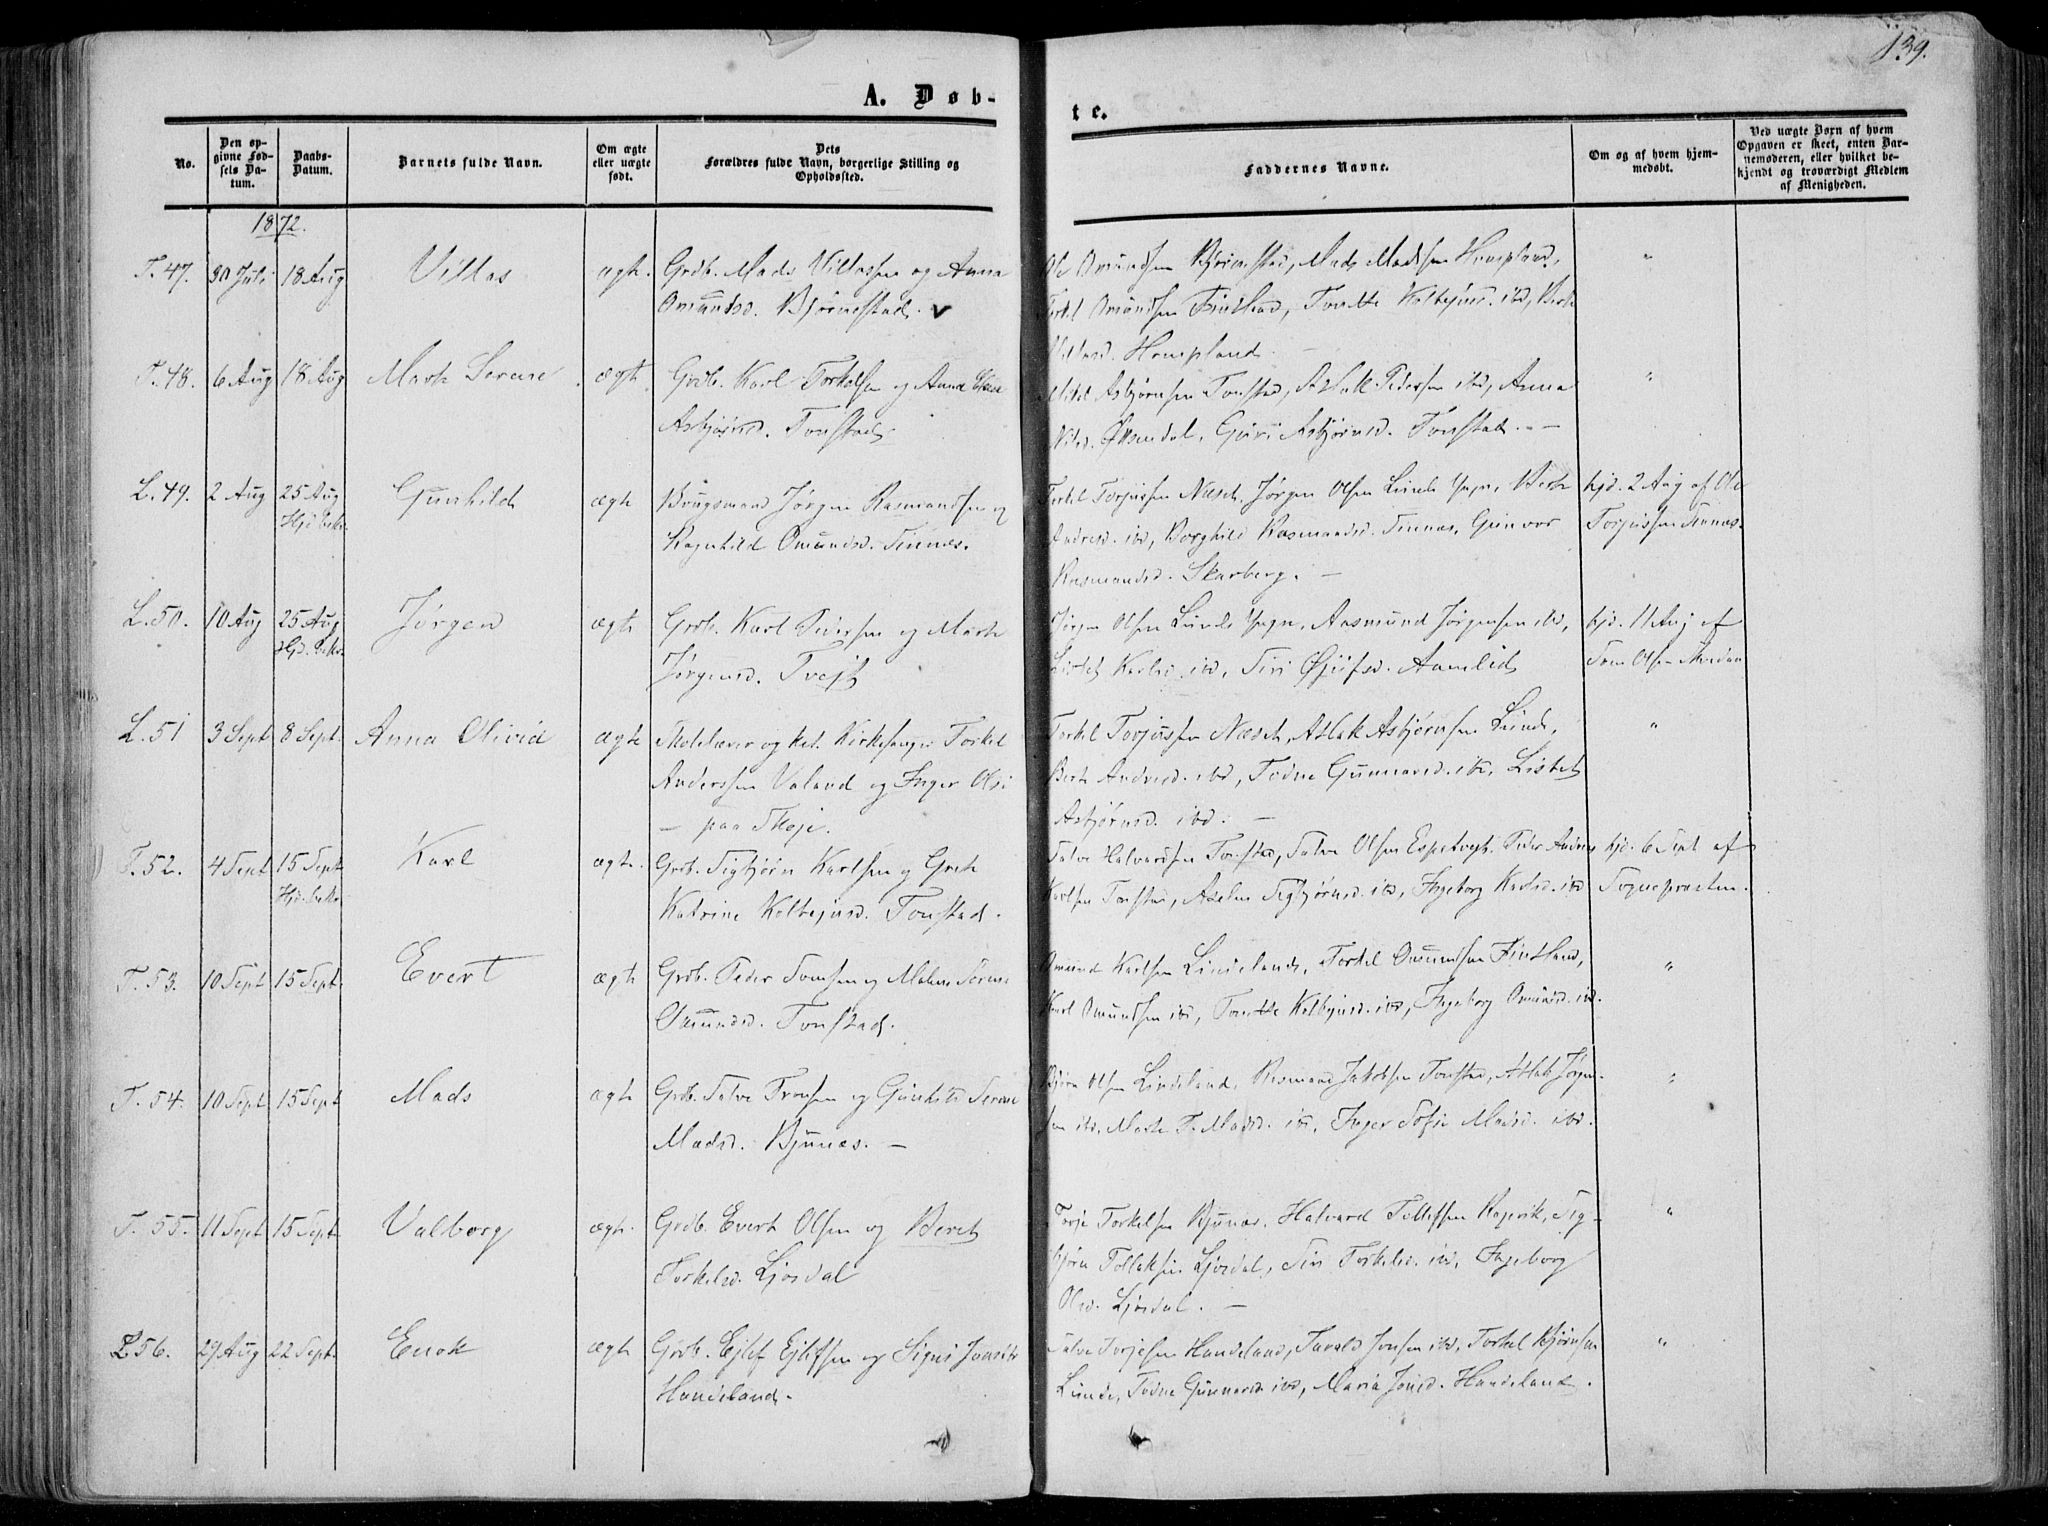 139.
A. Døb-
te.
No.
Den op-
givne Fød-
sels Da-
tum.
Daabs-
Datum.
Barnets fulde Navn.
Om ægte
eller uægte
født.
Dets
Forældres fulde Navn, borgerlige Stilling og
Opholdssted.
Faddernes Navne.
Om og af hvem hjem-
medøbt.
Ved uægte Børn af hvem
Opgaven er skeet, enten Bar-
nemoderen, eller hvilket be-
kjendt og troværdigt Medlem
af Menigheden.
1872.
T. 47. 30 Juli 18 Aug Villas ægte. Grdb. Mads Villassen og Anna
Omundsd. Bjørnestad. v
Ole Omundsen Bjørnestad, Mads Madssen Hompland,
Torkel Omundsen Fintland, Tonette Kolbejnsd. ibd, Berte
Villasd. Hompland. –
"
T. 48. 6 Aug 18 Aug Marte Serene ægte Grdb. Karl Torkelsen og Anna
Asbjørnsd. Tonstad.
Mikal Asbjørnsen Tonstad, Aslak Pedersen ibd, Anna
Nilsd. Øksendal, Guri Asbjørnsd. Tonstad. –
"
L. 49. 2 Aug 25 Aug Gunhild ægte Brugsmand Jørgen Rasmundsen og
Hjd. bekr.
Ragnhild Omundsd. Sinnes.
Torkel Torjussen Næset, Jørgen Olsen Lunde yngr, Berte
Andersd. ibd, Borghild Rasmundsd. Sinnes, Gunvor
Rasmundsd. Skarberg. –
hjd. 2 Aug af Ole
Torjussen Sinnes.
L. 50. 10 Aug 25 Aug Jørgen ægte Grdb. Karl Pedersen og Marte
Hjd. bekr.
Jørgensd. Tvejt
Jørgen Olsen Lunde yngr, Aasmund Jørgensen ibd,
Lisbet Karlsd. ibd, Siri Øjufsd. Aamlid
hjd. 11 Aug af
Tron Olsen
L. 51 3 Sept 8 Sept. Anna Olivia ægte Skolelærer og kst. Kirkesanger Torkel
Anderssen Valand og Inger
– paa Skeje.
Torkel Torjussen Næset, Aslak Asbjørnsen Lunde,
Berte Andersd. ibd, Todne Gunnarsd. ibd, Lisbet
Asbjørnsd. ibd. –
"
T. 52. 4 Sept 15 Sept Karl ægte. Grdb. Sigbjørn Karlsen og Grete
Hjd. bekr.
Katrine Kolbejnsd. Tonstad.
Salve Halvardsen Tonstad, Salve Olsen Espetvejt, Peder Andreas
Karlsen Tonstad, Aselin Sigbjørnsd. ibd, Ingeborg Karlsd. ibd
hjd. 6 Sept af
Sognepræsten.
T. 53. 10 Sept 15 Sept. Evert ægte Grdb. Peder Tronsen og Malene Serene
Omundsd. Tonstad.
Omund Karlsen Lindeland, Torkel Omundsen Fintland,
Karl Omundsen ibd, Tonette Kolbejnsd. ibd, Ingeborg Omundsd. ibd.
"
T. 54. 10 Sept 15 Sept Mads ægte Grdb. Salve Tronsen og Gunhild Serene
Madsd. Bjunes. –
Bjørn Olsen Lindeland, Rasmund Jakobsen Tonstad, Aslak Jørgen-
sen ibd. Marte T. Madsd. ibd, Inger Sofie Madsd. ibd.
"
T. 55. 11 Sept 15 Sept Valborg ægte. Grdb. Evert Olsen og Beret
Torkelsd. Ljosdal
Torje Torkelsen Bjunes, Halvard Tollefsen Røjsvik, Sig-
bjørn Tollaksen Ljosdal, Siri Torkelsd. ibd, Ingeborg
Olsd. Ljosdal. –
"
L 56. 29 Aug 22 Sept. Enok ægte Grdb. Ejlef Ejlefsen og Signi Jonsdtr
Handeland.
Salve Torjesen Handeland, Tarald Jonsen ibd, Torkel Bjørnsen
Lunde, Todne Gunnarsd. ibd, Maria Jonsd. Handeland.
"